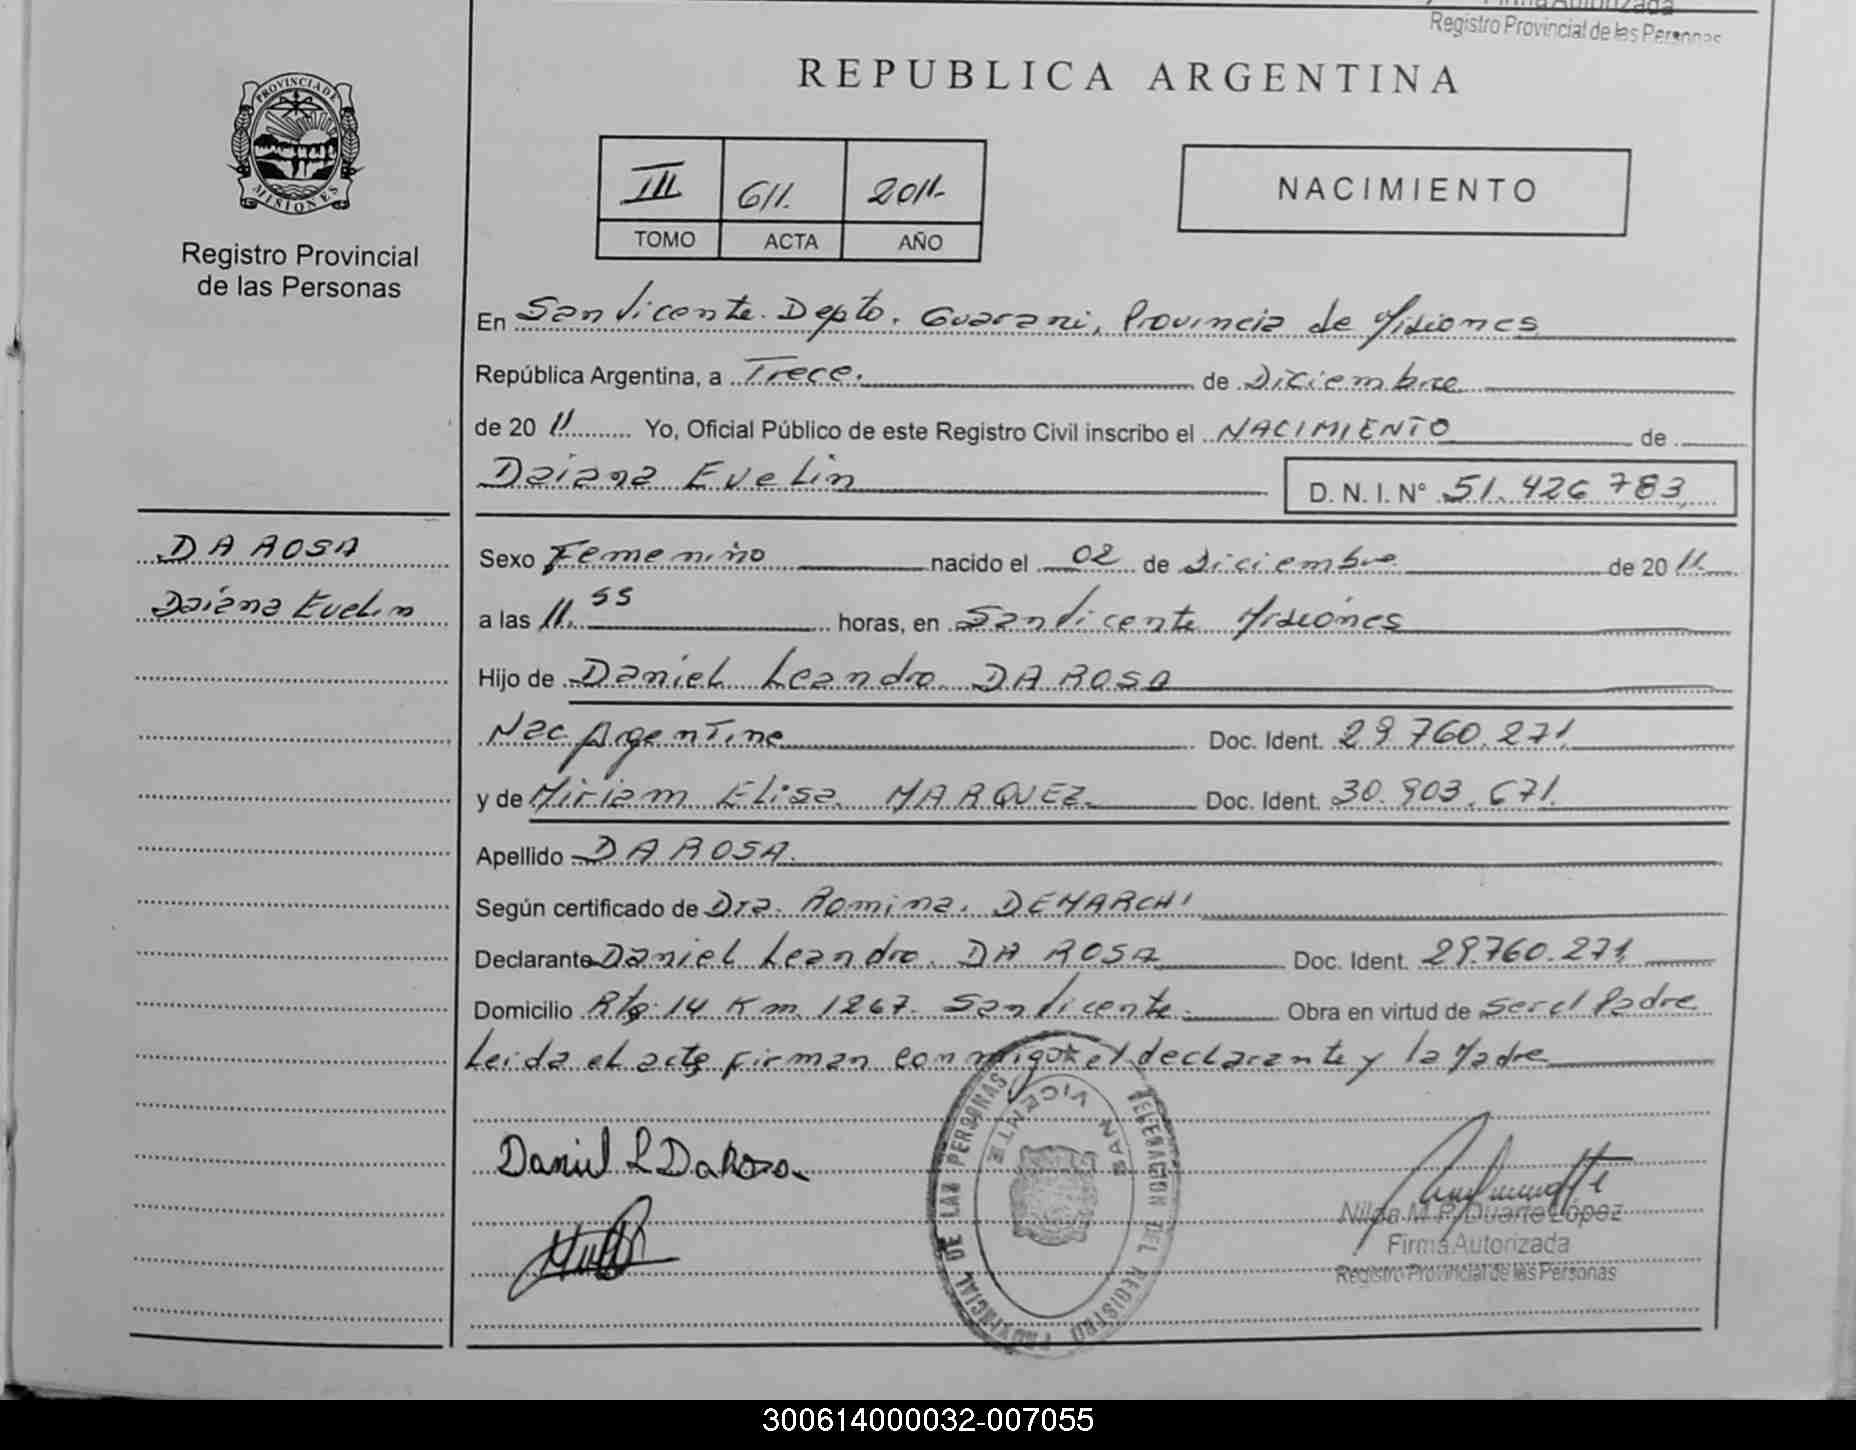 Firma Autorizada
Registro Provincial de las Personas
PROVINCIA DE
MISIONES
Registro Provincial
de las Personas
REPUBLICA ARGENTINA
III 611. 2011.
TOMO ACTA AÑO
NACIMIENTO
En San Vicente. Depto. Guarani, Provincia de Misiones
República Argentina, a Trece. de Diciembre
de 20 11 Yo, Oficial Público de este Registro Civil inscribo el NACIMIENTO de
Daiana Evelin D. N. I. N° 51.426.783
DA ROSA
Daiana Evelin
Sexo Femenino nacido el 02 de Diciembre de 20 11.
a las 11.55 horas, en San Vicente Misiones
Hijo de Daniel Leandro DA ROSA
Nac Argentina Doc. Ident. 29.760.271
y de Miriam Elisa MARQUEZ Doc. Ident. 30.903.671.
Apellido DA ROSA.
Según certificado de Dra. Romina. DEMARCHI
Declarante Daniel Leandro. DA ROSA Doc. Ident. 29.760.271
Domicilio Rta 14 Km 1267. San Vicente. Obra en virtud de ser el Padre
Leida el acta firman conmigo el declarante y la Madre
DELEGACION DEL REGISTRO PROVINCIAL DE LAS PERSONAS
SAN VICENTE
Daniel L Da Rosa
Nilda M. P. Duarte López
Firma Autorizada
Registro Provincial de las Personas
300614000032-007055